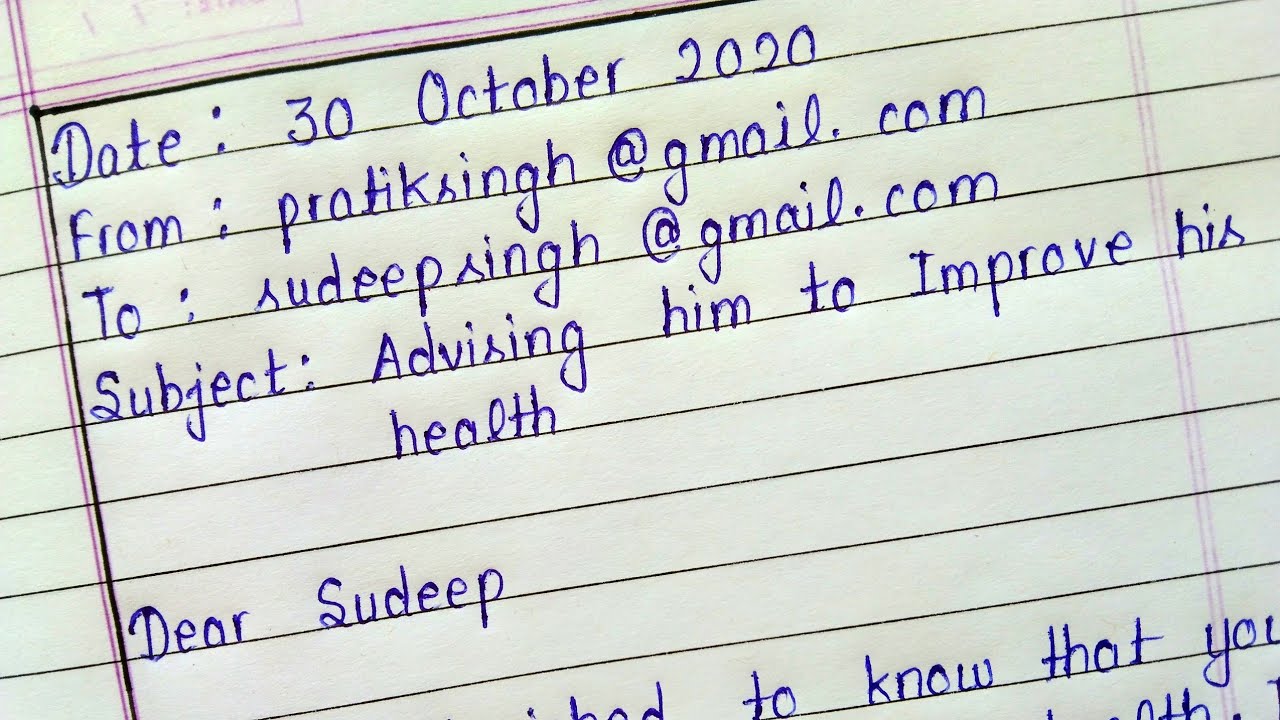 Date : 30 October 2020
From : pratiksingh @gmail. com
To : sudeepsingh @gmail.com
Subject: Advising him to Improve his
health
Dear Sudeep
to know that you